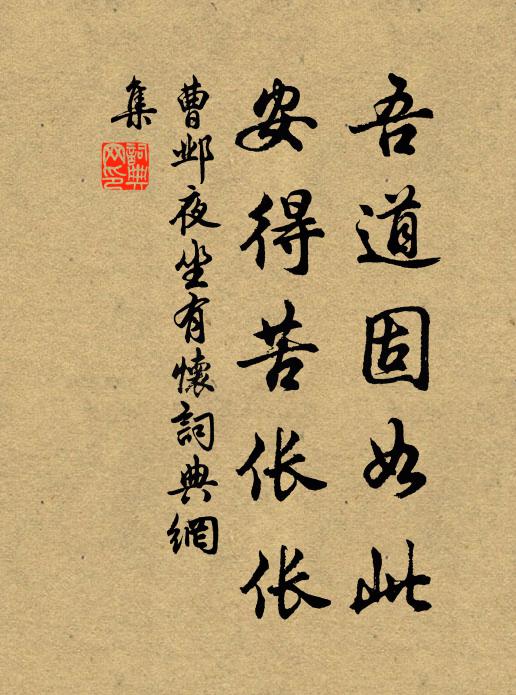 吾道固如此
安得苦伥伥
曹邺夜坐有懷詞典網
集
詞典网印